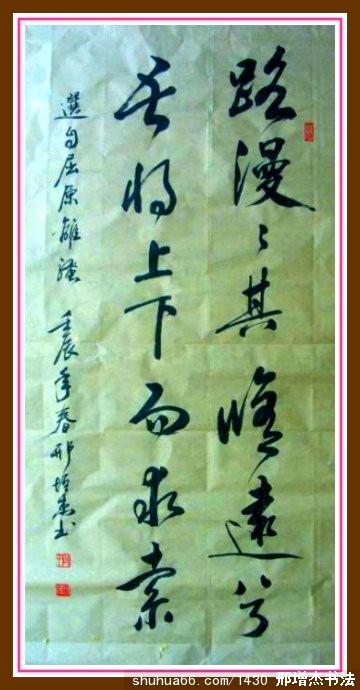 路漫々其脩遠兮
吾将上下而求索
選自屈原離騷 壬辰年春邢增杰书
shuhua66.com/1430 邢增杰书法